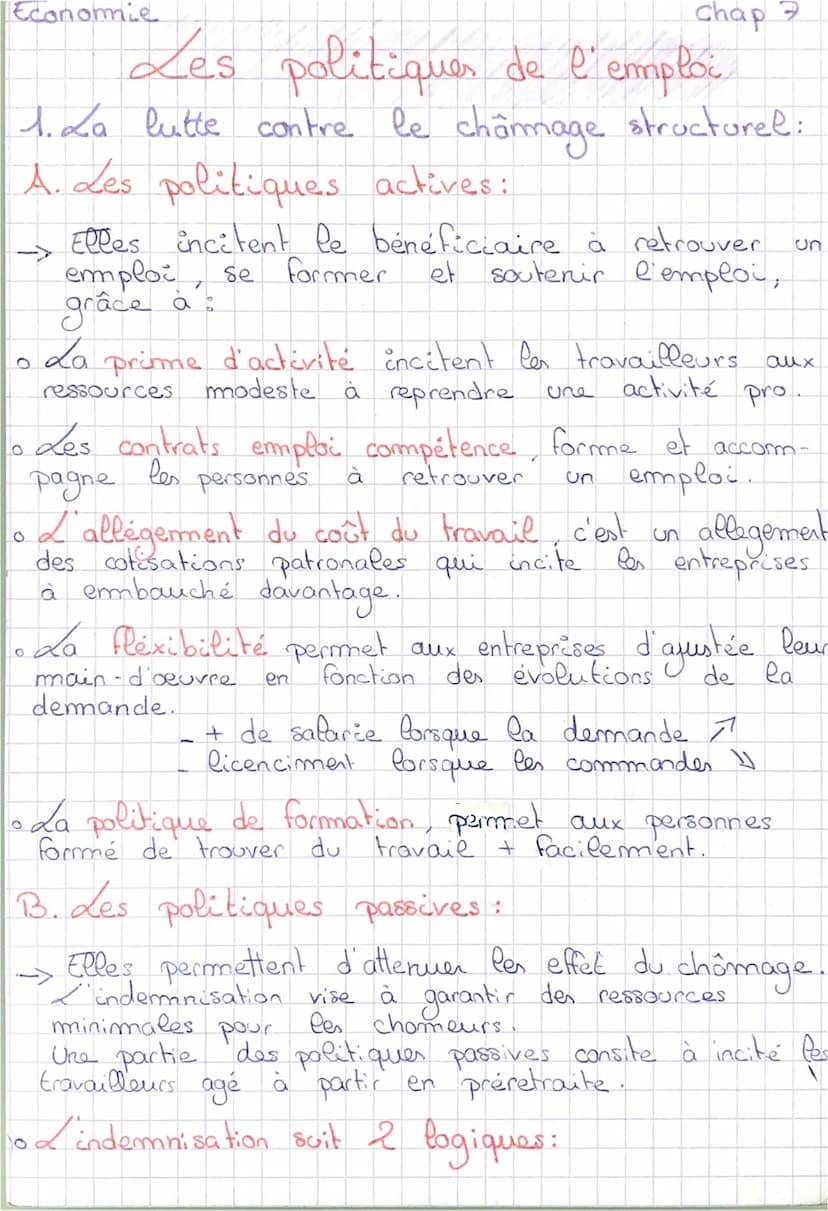 Economie Chap 7
Les politiques de l'emploi
1. La lutte contre le chômage structurel:
A. Les politiques actives:
→ Elles incitent le bénéficiaire à retrouver un
emploi, se former et soutenir l'emploi,
grâce à :
o La prime d'activité incitent les travailleurs aux
ressources modeste à reprendre une activité pro.
o Les contrats emploi compétence, forme et accom-
pagne les personnes à retrouver un emploi.
o L'allégement du coût du travail, c'est un allegement
des cotisations patronales qui incite les entreprises
à embauché davantage.
o La fléxibilité permet aux entreprises d'ajustée leur
main-d'oeuvre en fonction des évolutions de la
demande.
- + de salarie lorsque la demande ↗
- licenciment lorsque les commandes ↘
o La politique de formation, permet aux personnes
formé de trouver du travail + facilement.
B. Les politiques passives:
→ Elles permettent d'attenuer les effet du chômage.
L'indemnisation vise à garantir des ressources
minimales pour les chomeurs.
Une partie des politiques passives consite à incité les
travailleurs agé à partir en préretraite.
o L'indemnisation suit 2 logiques: